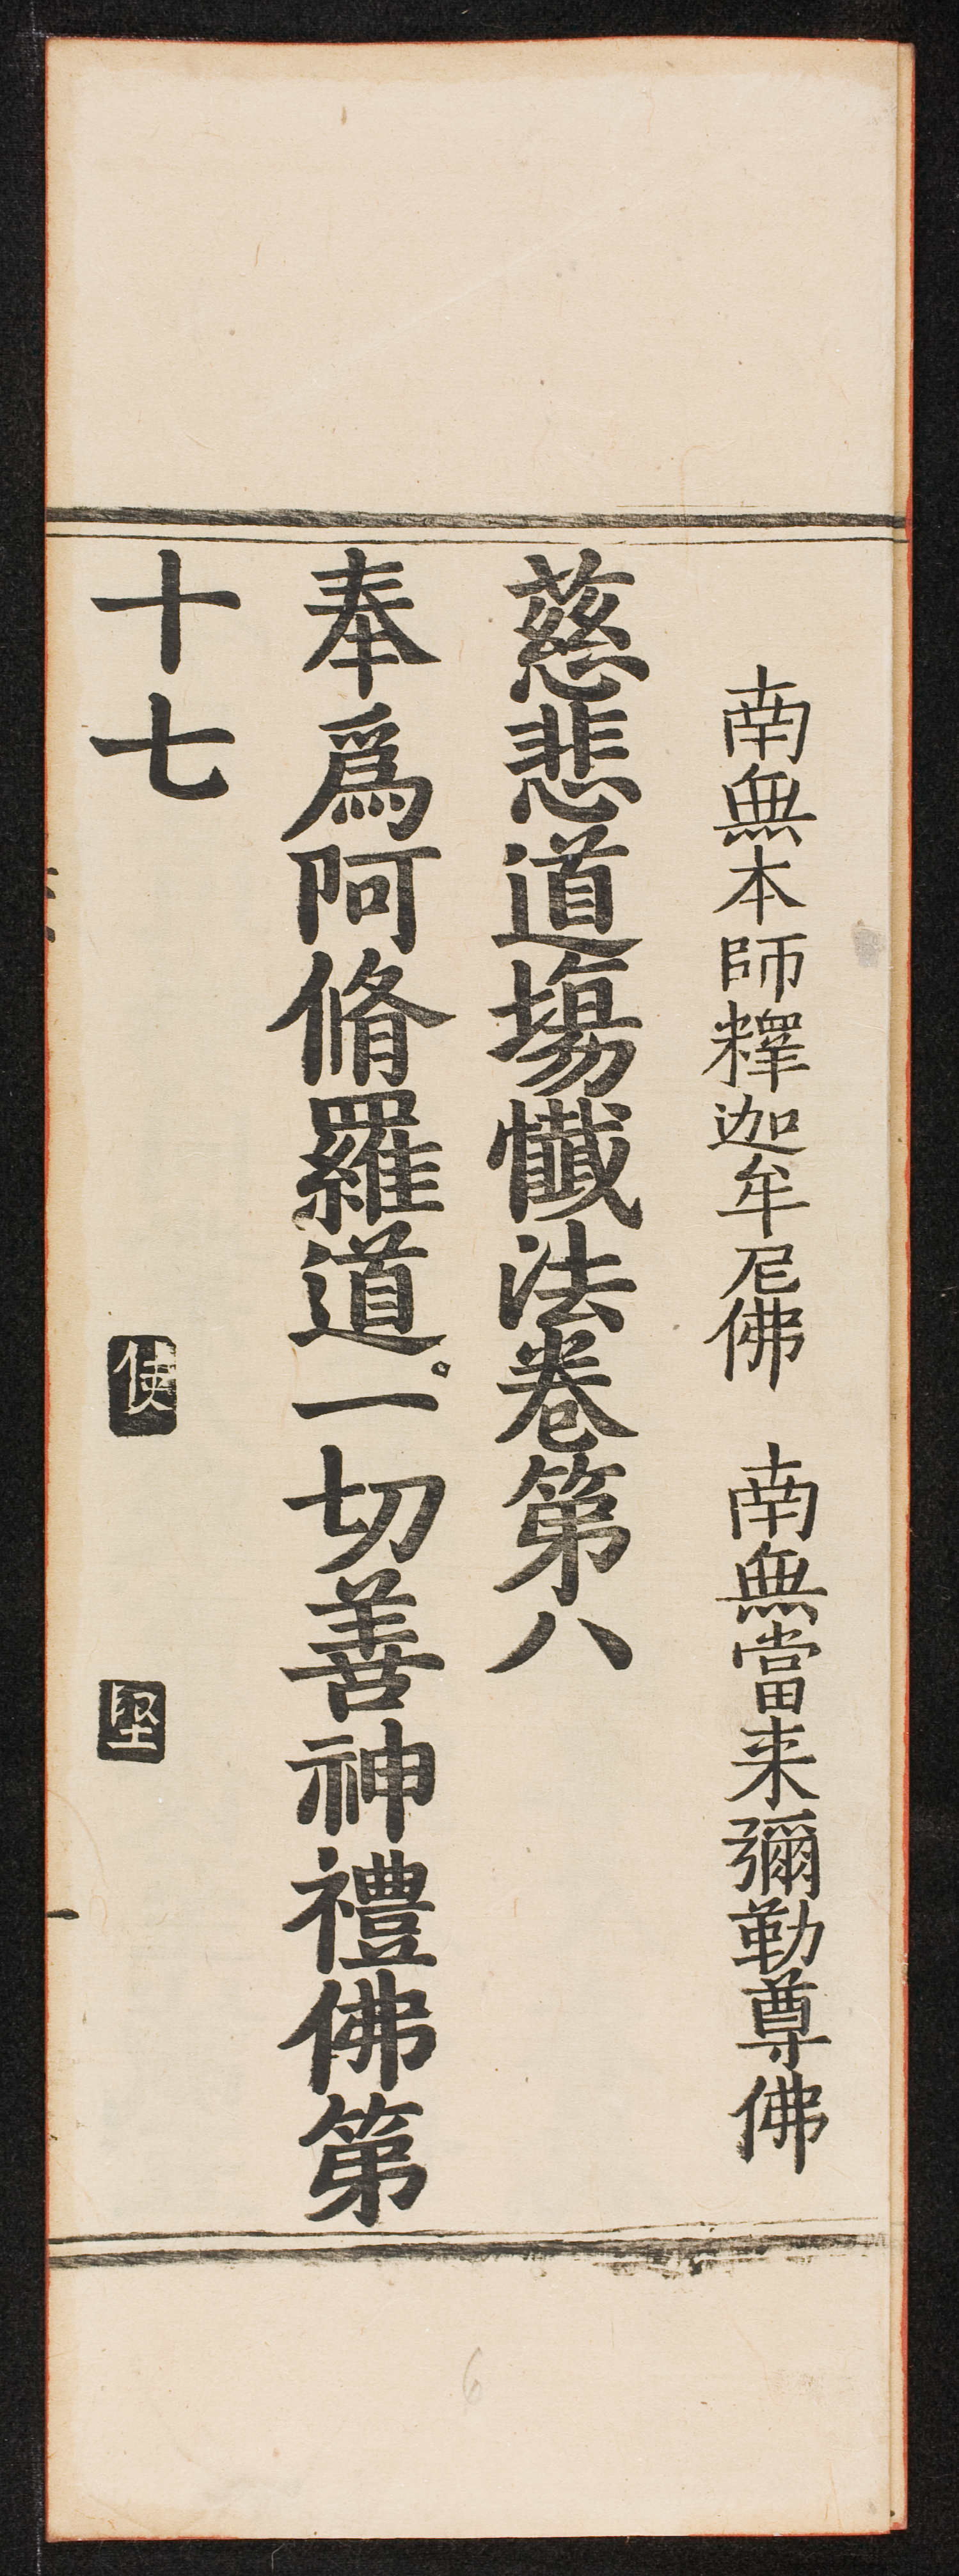 南無本師釋迦牟尼佛　南無當来彌勒尊佛
慈悲道場懺法卷第八
奉爲阿脩羅道。一切善神禮佛第
十七
使
堅
6